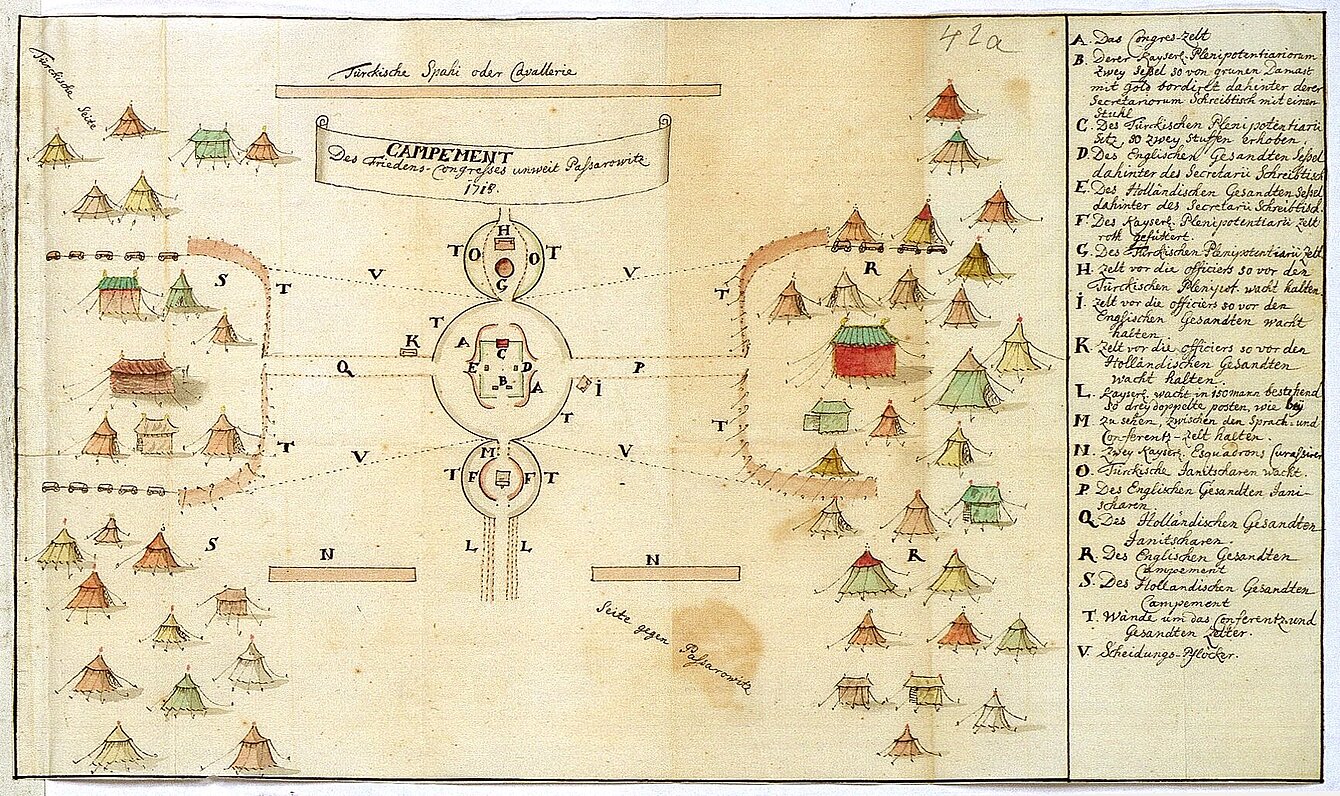 42a
Türckische Seite
Türckische Spahi oder Cavallerie
CAMPEMENT
Des Friedens-Congresses unweit Passarowitz
1718.
H
T O O T
G
S V V R
T T
T
K A C
Q E D P
B A i
T
T T
V M V
T F F T
S L L R
N N
Seite gegen Passarowitz
A. Das Congres-zelt
B. Derer Kayserl. Plenipotentiariorum
zwey Seßel so von grunen Damast
mit gold bordirt dahinter derer
Secretariorum Schreibtisch mit einen
Stuhl
C. Des Türckischen Plenipotentiarii
Sitz, so zwey Stuffen erhoben.
D. Des Englischen Gesandten Seßel
dahinter des Secretarii Schreibtisch
E. Des Holländischen Gesandten Seßel
dahinter des Secretarii Schreibtisch.
F. Des Kayserl. Plenipotentiarii zelt
roth gefüttert.
G. Des Türckischen Plenipotentiarii Zelt
H. zelt vor die officiers so vor den
Türckischen Plenipot. wacht halten.
i. zelt vor die officiers so vor den
Englischen Gesandten wacht
halten.
K. zelt vor die officiers so vor den
Holländischen Gesandten
wacht halten.
L. Kayserl. wacht in 150 mann bestehend
so drey doppelte posten, wie bey
M. zu sehen, zwischen den Sprach- und
Conferentz-zelt halten.
N. Zwey Kayserl. Esquadrons Curassirer
O. Türckische Janitscharen wacht.
P. Des Englischen Gesandten Jani-
scharen
Q. Des Holländischen Gesandten
Janitscharen.
R. Des Englischen Gesandten
Campement
S. Des Holländischen Gesandten
Campement
T. Wände um das Conferentz und
Gesandten Zelter.
V. Scheidungs-Pflöcker.